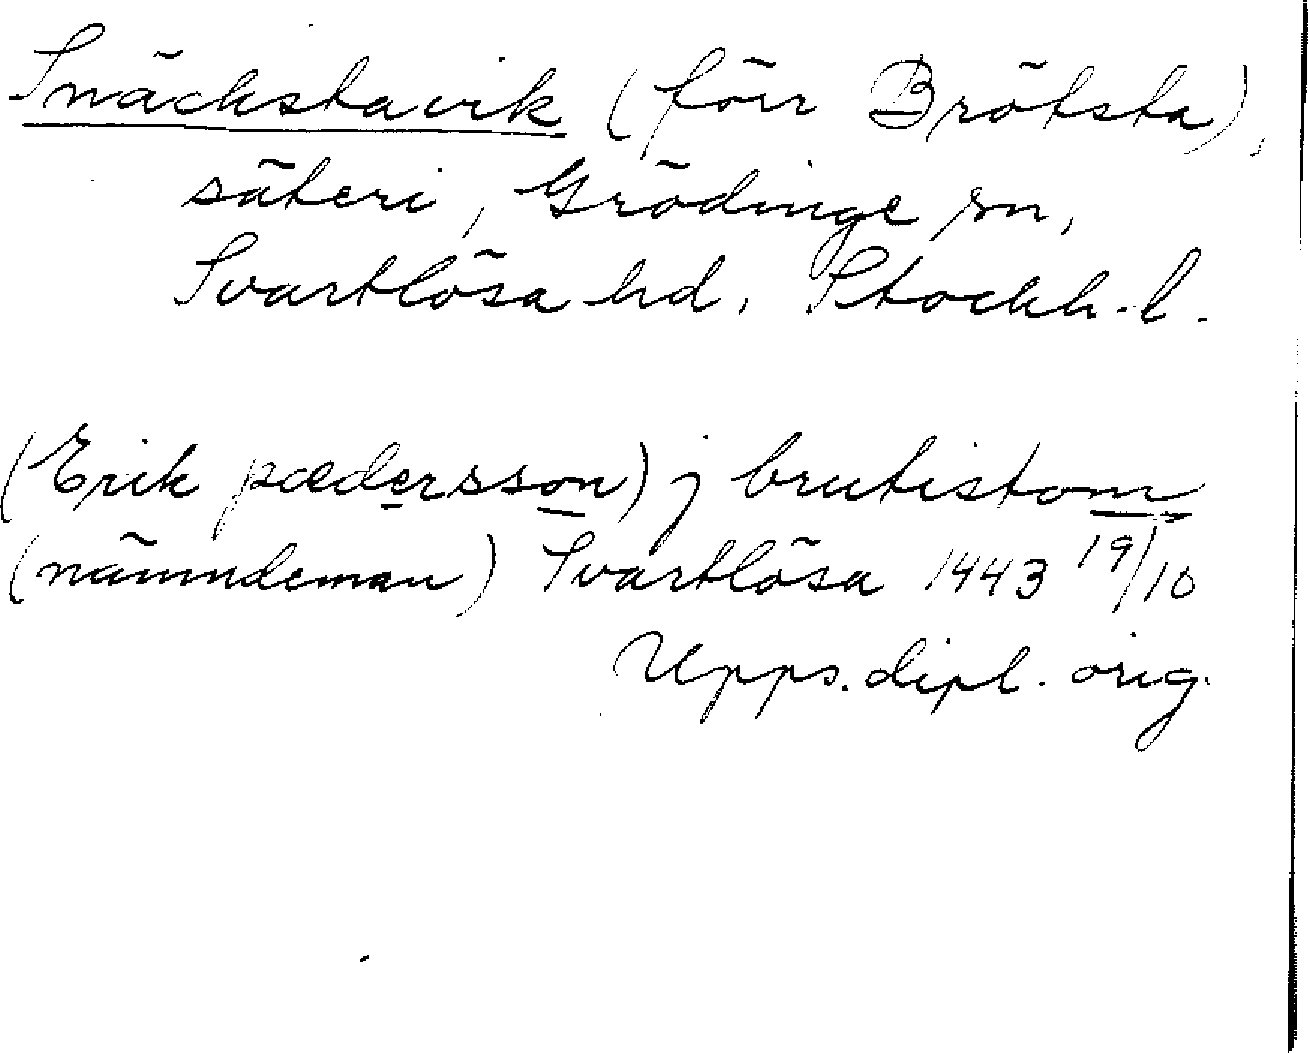 Snäckstavik (förr Brötsta),
säteri, Grödinge sn,
Svartlösa hd, Stockh. l.
(Erik pædersson) j brutistom
(nämndeman) Svartlösa 1443 19/10
Upps. dipl. orig.